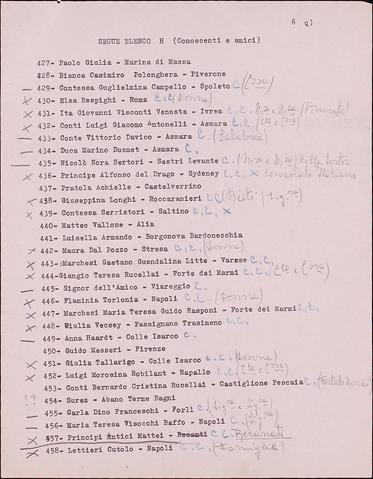 6 g)
SEGUE ELENCO H (Conoscenti e amici)
427- Paolo Giulia - Marina di Massa
428- Bianca Casimiro Polonghera - Piverone
429- Contessa Guglielmina Campello - Spoleto C.
X 430- Elsa Respighi - Roma C. C. (Donna)
X 431- Ita Giovanni Visconti Venosta - Ivrea C. C.
X 432- Conti Luigi Giacomo Antonelli - Asmara C. C.
433- Conte Vittorio Davico - Asmara C.
434- Duca Marino Dusmet - Asmara C.
435- Nicolò Nora Sertori - Sestri Levante C.
X 436- Principe Alfonso del Drago - Sydeney C. C. X Consolato Italiano
437- Pratola Achielle - Castelverrino
X 438- Giuseppina Longhi - Roccaranieri C. C.
X 439- Contessa Serristori - Saltino C. C. X
440- Matteo Vallone - Alia
441- Luisella Armando - Borgonova Bardonecchia
X 442- Maura Dal Pozzo - Stresa C. C. (Donna)
X 443- Marchesi Gaetano Guendalina Litte - Varese C. C.
X 444- Giangio Teresa Rucellai - Forte dei Marmi C. C.
445- Signor dell'Amico - Viareggio C.
X 446- Flaminia Torlonia - Napoli C. C. (Donna)
X 447- Marchesi Maria Teresa Guido Rasponi - Forte dei Marmi C. C.
X 448- Giulia Vecsey - Passignano Trasimeno C. C.
449- Anna Haardt - Colle Isarco C.
450- Guido Messeri - Firenze
X 451- Giulia Tallarigo - Colle Isarco C. C. (Donna)
X 452- Luigi Morosina Robilant - Rapallo C. C.
453- Conti Bernardo Cristina Rucellai - Castiglione Pescaia C.
?? 454- Surez - Abano Terme Bagni
455- Carla Dino Franceschi - Forlì C.
456- Maria Teresa Visocchi Baffo - Napoli C.
X 457- Principi Antici Mattei - Recanti C. C. Recanati
X 458- Lettieri Cutolo - Napoli C. C. (Famiglia)